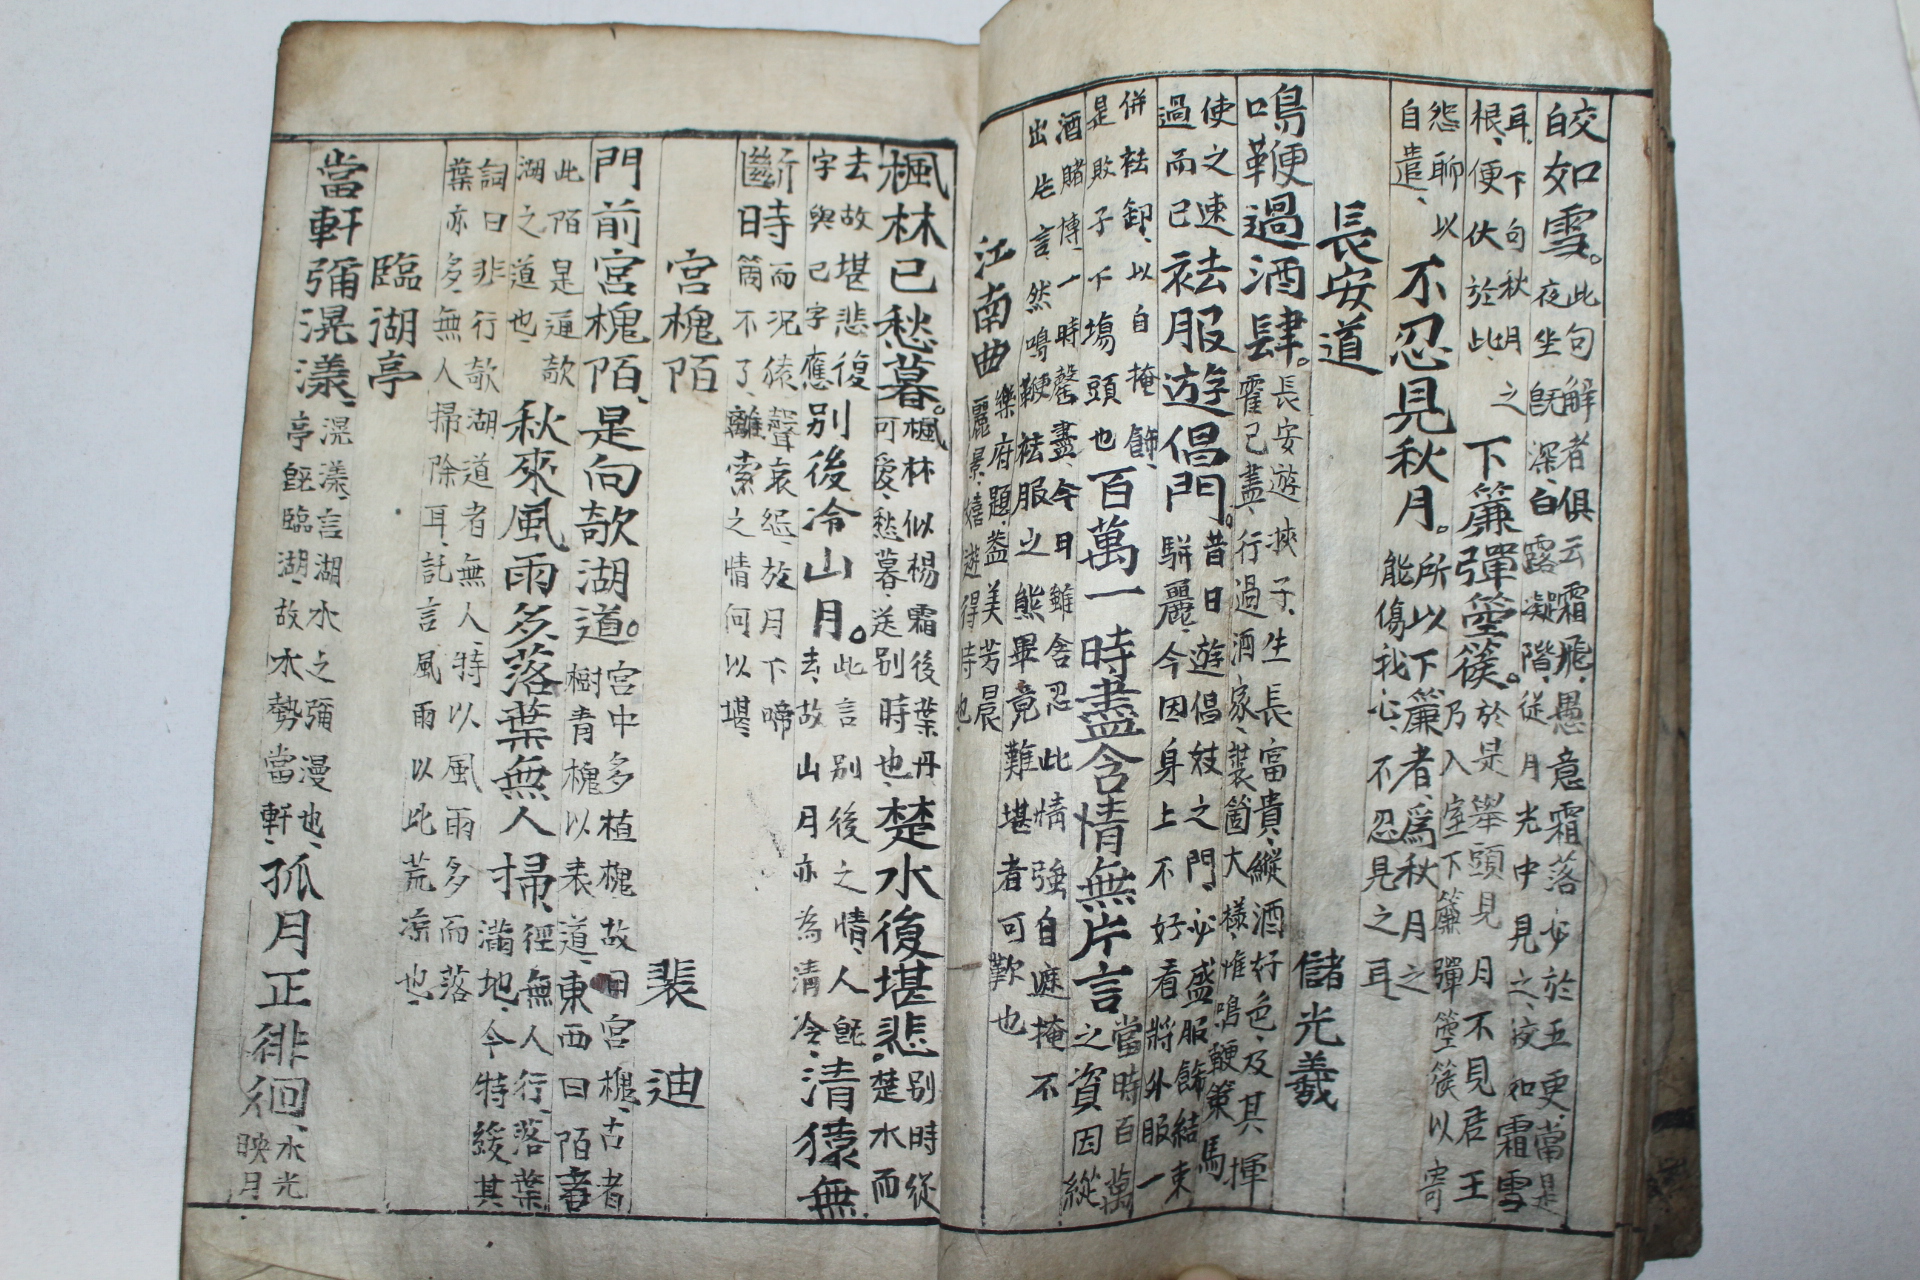 皎如雪。此句解者俱云霜飛、愚意霜落必於五更、當是夜坐旣深、白露凝階、從月光中見之、皎如霜雪
耳、下句秋月之根、便伏於此、下簾彈箜篌。於是擧頭見月不見君王乃入室下簾彈箜篌以寄
怨聊以自遣、不忍見秋月。所以下簾者、爲秋月之能傷我心、不忍見之耳
長安道 儲光羲
鳴鞭過酒肆。長安遊挾子、生長富貴、縱酒好色、及其揮霍已盡、行過酒家、裝箇大樣、惟鳴鞭策馬
使之速過而已袪服遊倡門。昔日遊倡妓之門、必盛服餙結束騈麗、今因身上不好看將外服一
併袪卸、以自掩餙、是敗子下塲頭也百萬一時盡含情無片言當時百萬之資因縱
酒賭博、一時罄盡、今日雖含忍此情强自遮掩不出片言、然鳴鞭袪服之態畢竟難堪者可歎也
江南曲 樂府題、葢美芳晨麗景、嬉遊得時也、
楓林已愁暮。楓林似楊霜後葉丹可愛、愁暮、送别時也、楚水後堪悲、别時從楚水而
去故堪悲後字與已字應别後冷山月。此言别後之情、人旣去、故山月亦為清冷、清猿無
斷時而况猿聲哀怨、於月下啼箇不了、離索之情何以堪、
宮槐陌 裴迪
門前宮槐陌、是向欹湖道。宮中多植槐故曰宮槐、古者樹青槐以表道、東西曰陌者
此陌是通欹湖之道也、秋來風雨多落葉無人掃、徑無人行、落葉滿地、今特綴其
詞曰非行欹湖道者無人、特以風雨多而落葉亦多、無人掃除耳、託言風雨以此荒凉也、
臨湖亭
當軒彌滉漾、滉漾、言湖水之彌漫也、亭旣臨湖、故水勢當軒、孤月正徘徊、水光映月、